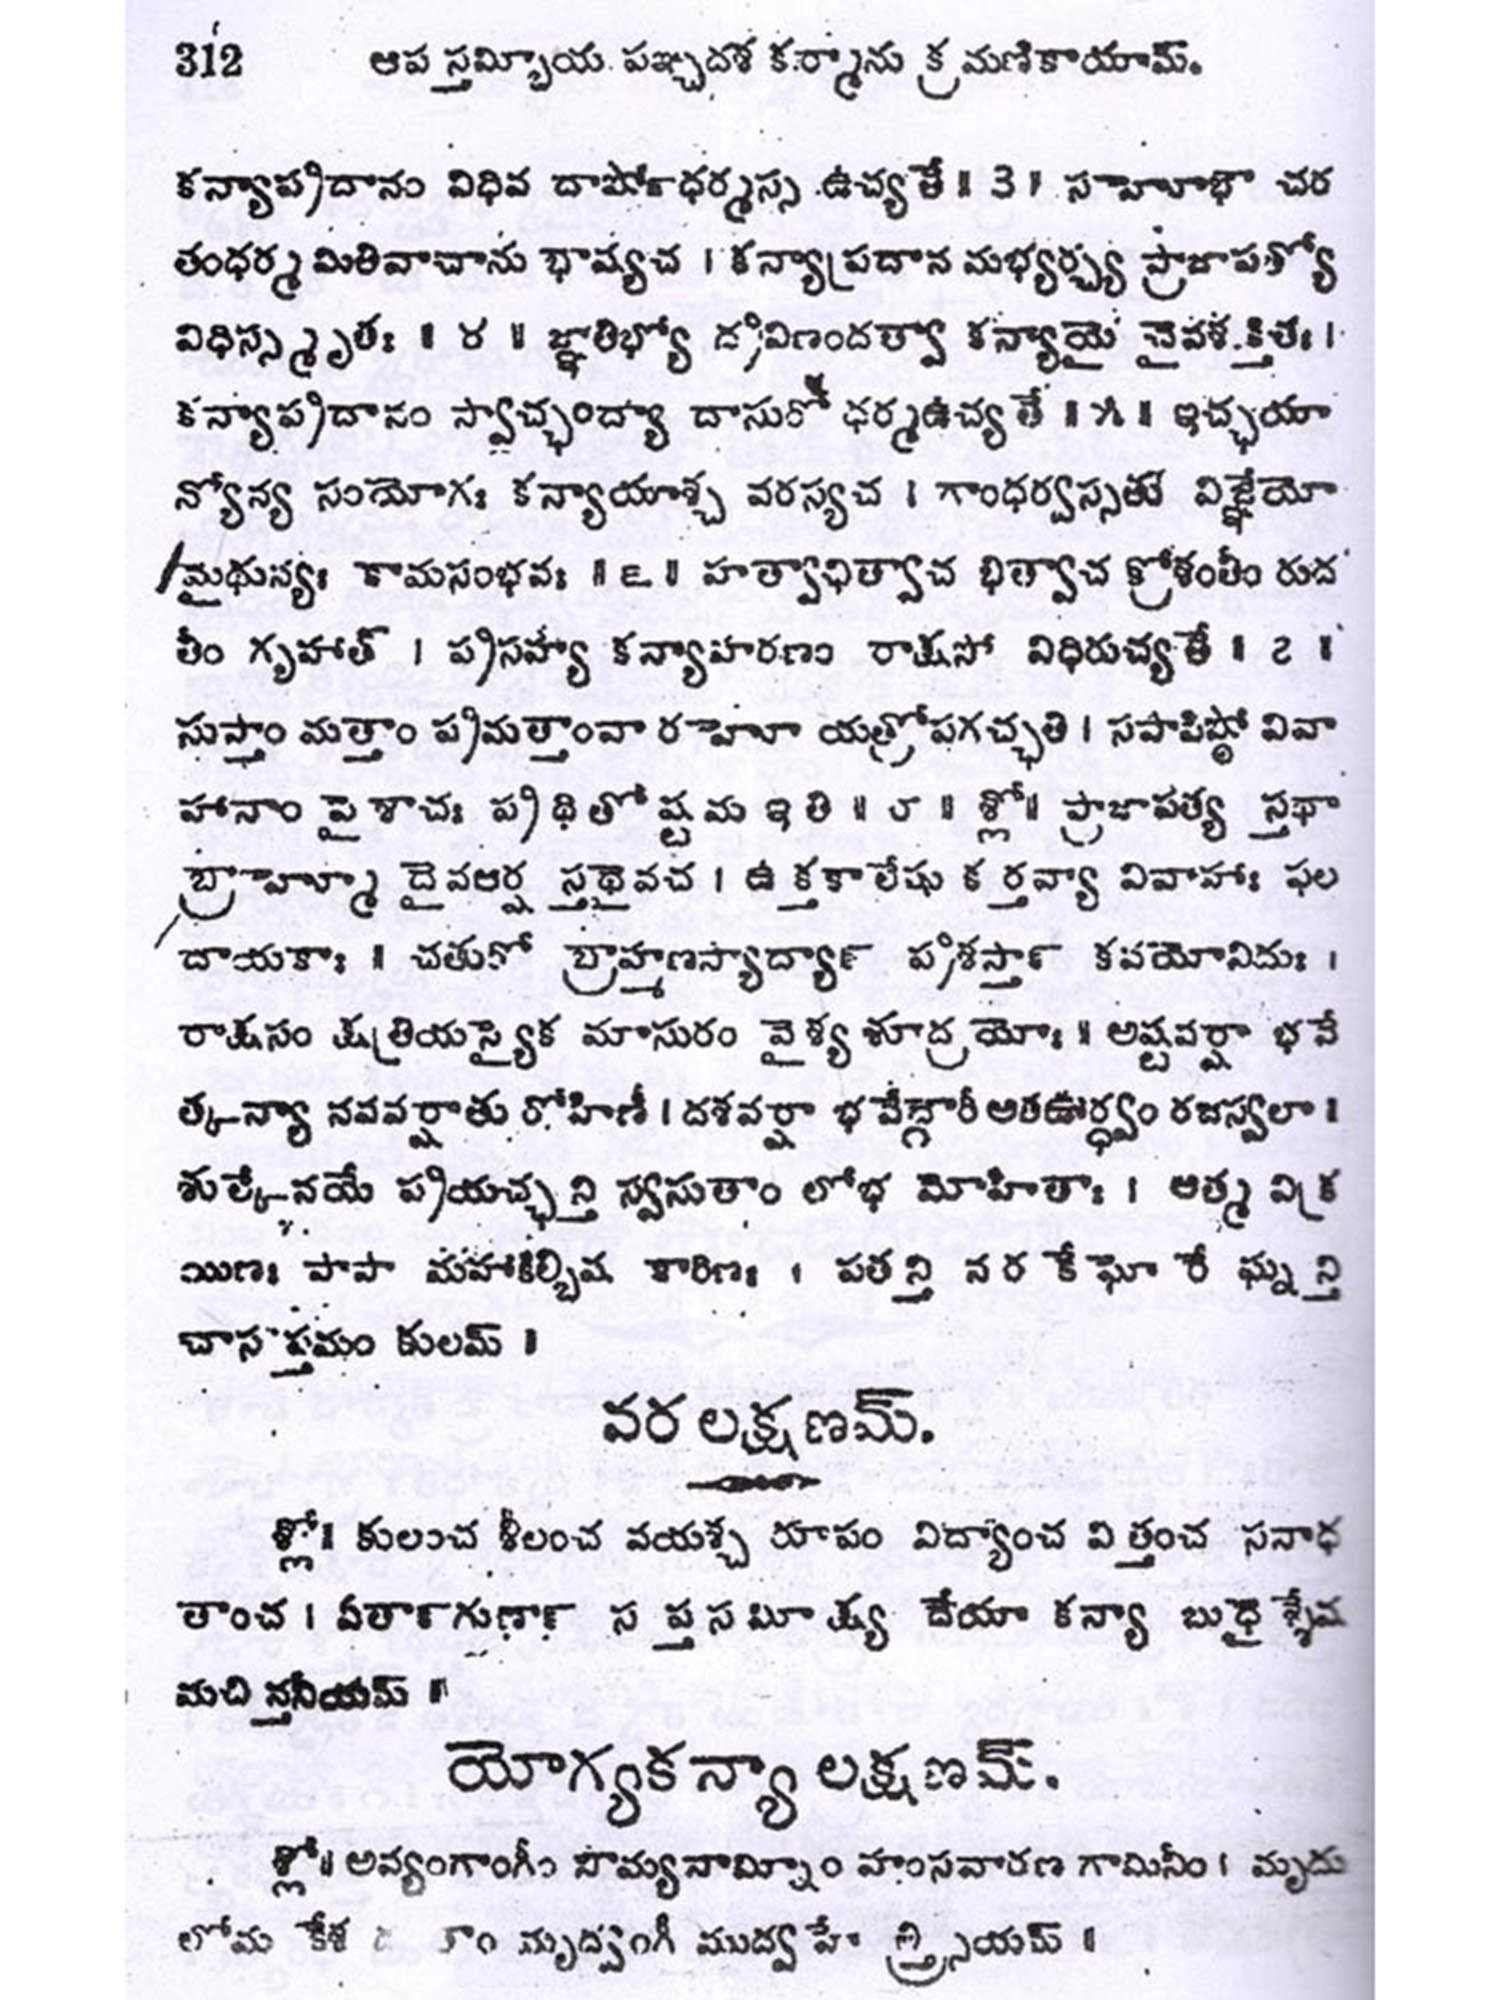 312 ఆపస్తమ్బీయ పఞ్చదశ కర్మాను క్రమణికాయామ్.
కన్యాప్రదానం విధివ దార్షోధర్మస్స ఉచ్యతే ॥ ౩ ॥ సహోభౌ చర
తంధర్మ మితివాచాను భాష్యచ । కన్యాప్రదాన మభ్యర్చ్య ప్రాజాపత్యో
విధిస్స్మృతః ॥ ౪ ॥ జ్ఞాతిభ్యో ద్రవిణందత్వా కన్యాయై చైవశక్తితః ।
కన్యాప్రదానం స్వాచ్ఛంద్యా దాసురో ధర్మఉచ్యతే ॥ ౫ ॥ ఇచ్ఛయా
న్యోన్య సంయోగః కన్యాయాశ్చ వరస్యచ । గాంధర్వస్సతు విజ్ఞేయో
మైథున్యః కామసంభవః ॥ ౬ ॥ హత్వాఛిత్వాచ భిత్వాచ క్రోశంతీం రుద
తీం గృహాత్ । ప్రసహ్య కన్యాహరణం రాక్షసో విధిరుచ్యతే ॥ ౭ ॥
సుప్తాం మత్తాం ప్రమత్తాంవా రహో యత్రోపగచ్ఛతి । సపాపిష్ఠో వివా
హానాం పైశాచః ప్రథితోష్టమ ఇతి ॥ ౮ ॥ శ్లో॥ ప్రాజాపత్య స్తథా
బ్రాహ్మో దైవఆర్ష స్తథైవచ । ఉక్తకాలేషు కర్తవ్యా వివాహాః ఫల
దాయకాః ॥ చతురో బ్రాహ్మణస్యాద్యా౯ ప్రశస్తా౯ కవయోవిదుః ।
రాక్షసం క్షత్రియస్యైక మాసురం వైశ్య శూద్రయోః ॥ అష్టవర్షా భవే
త్కన్యా నవవర్షాతు రోహిణీ । దశవర్షా భవేద్గౌరీ అతఊర్ధ్వం రజస్వలా ॥
శుల్కేనయే ప్రయచ్ఛన్తి స్వసుతాం లోభ మోహితాః । ఆత్మ విక్ర
యిణః పాపా మహాకిల్బిష కారిణః । పతన్తి నరకేఘోరే ఘ్నన్తి
చాసప్తమం కులమ్ ॥
వర లక్షణమ్.
శ్లో॥ కులంచ శీలంచ వయశ్చ రూపం విద్యాంచ విత్తంచ సనాధ
తాంచ । ఏతా౯గుణా౯ సప్తసమీక్ష్య దేయా కన్యా బుధైశ్శేష
మచిన్తనీయమ్ ॥
యోగ్యకన్యా లక్షణమ్.
శ్లో॥ అవ్యంగాంగీం సౌమ్యనామ్నీం హంసవారణ గామినీం । మృదు
లోమ కేశ మృద్వంగీ ముద్వహే త్స్త్రియమ్ ॥